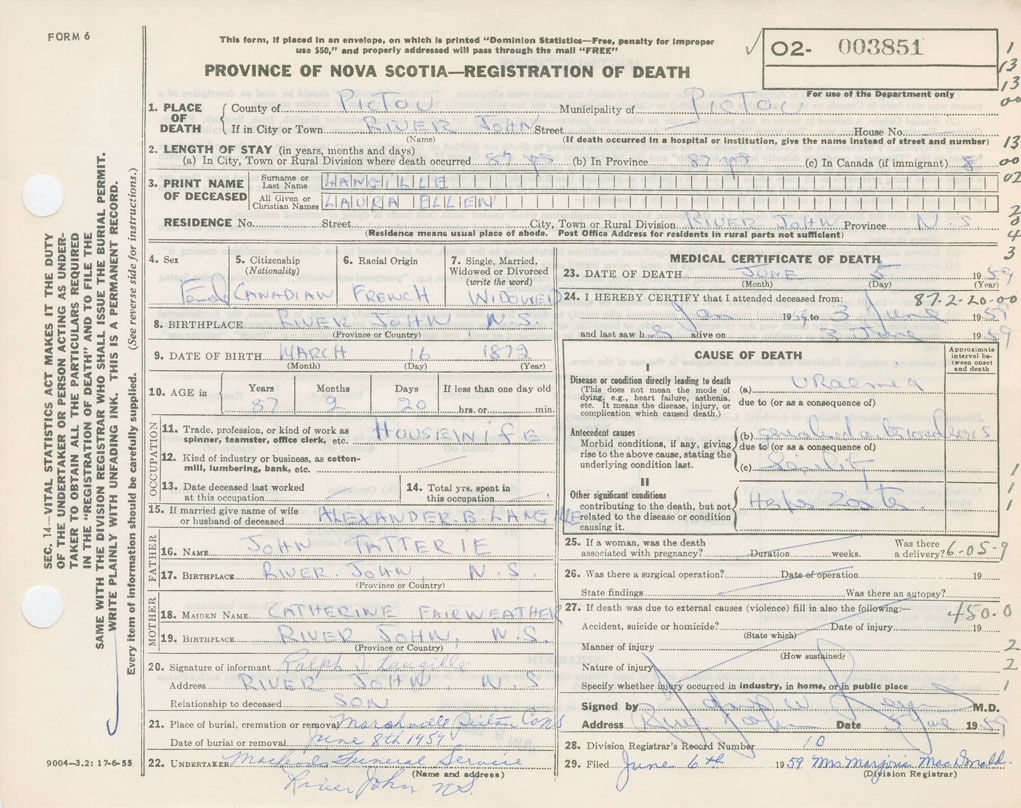 FORM 6
This form, if placed in an envelope, on which is printed "Dominion Statistics—Free, penalty for improper
use $50," and properly addressed will pass through the mail "FREE"
PROVINCE OF NOVA SCOTIA—REGISTRATION OF DEATH
O2- 003851
For use of the Department only
1. PLACE OF DEATH
County of PICTOU Municipality of PICTOU
If in City or Town RIVER JOHN Street House No.
(Name) (If death occurred in a hospital or institution, give the name instead of street and number)
2. LENGTH OF STAY (in years, months and days)
(a) In City, Town or Rural Division where death occurred 87 yrs (b) In Province 87 yrs (c) In Canada (if immigrant)
3. PRINT NAME OF DECEASED
Surname or Last Name LANGILLE
All Given or Christian Names LAURA ELLEN
RESIDENCE No. Street City, Town or Rural Division RIVER JOHN Province N.S
(Residence means usual place of abode. Post Office Address for residents in rural parts not sufficient)
4. Sex
5. Citizenship (Nationality) CANADIAN
6. Racial Origin FRENCH
7. Single, Married, Widowed or Divorced (write the word) WIDOWED
8. BIRTHPLACE RIVER JOHN, N.S.
(Province or Country)
9. DATE OF BIRTH MARCH 16 1872
(Month) (Day) (Year)
10. AGE in Years Months Days If less than one day old
87 2 20 hrs. or min.
OCCUPATION
11. Trade, profession, or kind of work as spinner, teamster, office clerk, etc. HOUSEWIFE
12. Kind of industry or business, as cotton-mill, lumbering, bank, etc.
13. Date deceased last worked at this occupation
14. Total yrs. spent in this occupation
15. If married give name of wife or husband of deceased ALEXANDER. B. LANGILLE
FATHER
16. NAME JOHN TATTERIE
17. BIRTHPLACE RIVER JOHN, N.S
(Province or Country)
MOTHER
18. MAIDEN NAME CATHERINE FAIRWEATHER
19. BIRTHPLACE RIVER JOHN, N.S.
(Province or Country)
20. Signature of informant Ralph J. Langille
Address RIVER JOHN N.S
Relationship to deceased SON
21. Place of burial, cremation or removal Marshville Pictou
Date of burial or removal June 8th 1959
22. UNDERTAKER Funeral Service
(Name and address)
River John N.S.
9004—3.2: 17-6-55
MEDICAL CERTIFICATE OF DEATH
23. DATE OF DEATH JUNE 5 1959
(Month) (Day)
24. I HEREBY CERTIFY that I attended deceased from: 87-2-20-00
Jan to 3 June 1959
and last saw h alive on 3 June 1959
CAUSE OF DEATH
Approximate interval between onset and death
I
Disease or condition directly leading to death
(This does not mean the mode of dying, e.g., heart failure, asthenia, etc. It means the disease, injury, or complication which caused death.)
(a) Uraemia
due to (or as a consequence of)
Antecedent causes
Morbid conditions, if any, giving rise to the above cause, stating the underlying condition last.
(b)
due to (or as a consequence of)
(c) Senility
II
Other significant conditions
contributing to the death, but not related to the disease or condition causing it.
25. If a woman, was the death associated with pregnancy? Duration weeks. Was there a delivery? 6-05-9
26. Was there a surgical operation? Date of operation 19
State findings Was there an autopsy?
27. If death was due to external causes (violence) fill in also the following:— 450-0
Accident, suicide or homicide? Date of injury 19
(State which)
Manner of injury
(How sustained)
Nature of injury
Specify whether injury occurred in industry, in home, or in public place
Signed by M.D.
Address River John Date June 1959
28. Division Registrar's Record Number 10
29. Filed June 6th 1959 Mrs Marjorie MacDonald.
(Division Registrar)
SEC. 14—VITAL STATISTICS ACT MAKES IT THE DUTY
OF THE UNDERTAKER OR PERSON ACTING AS UNDER-
TAKER TO OBTAIN ALL THE PARTICULARS REQUIRED
IN THE "REGISTRATION OF DEATH" AND TO FILE THE
SAME WITH THE DIVISION REGISTRAR WHO SHALL ISSUE THE BURIAL PERMIT.
WRITE PLAINLY WITH UNFADING INK. THIS IS A PERMANENT RECORD.
Every item of information should be carefully supplied. (See reverse side for instructions.)
1
13
13
00
13
00
02
2
0
4
3
1
1
1
2
2
1